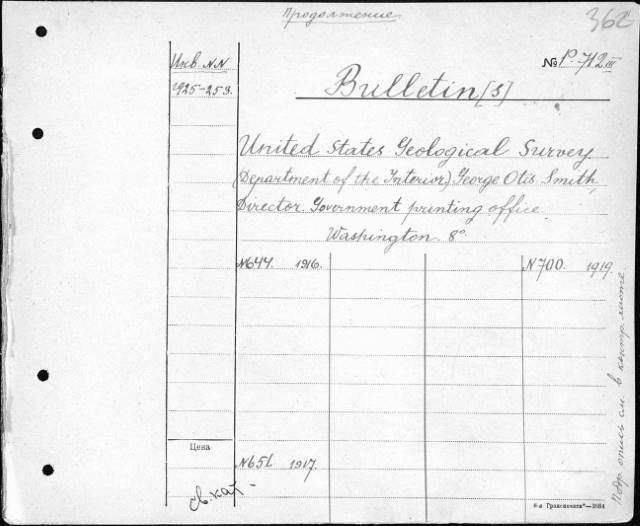 Продолжение
362
Инв. NN
1925-253.
№ Р-712 III
Bulletin[s]
United States Geological Survey.
(Department of the Interior) George Otis Smith,
Director. Government printing office.
Washington. 8°.
N644. 1916.
N700. 1919.
Цена
N651. 1917.
св. кат -
Подр. опись см. в контр. листе.
6-я Гранспечати"—3884